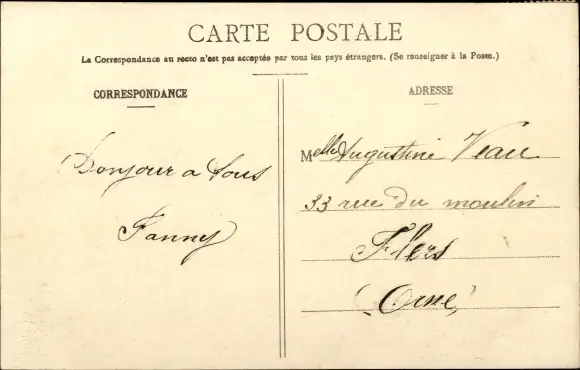 CARTE POSTALE
La Correspondance au recto n'est pas acceptée par tous les pays étrangers. (Se renseigner à la Poste.)
CORRESPONDANCE
Bonjour a tous
Fanny
ADRESSE
Melle Augustine Veau
33 rue du moulin
Flers
(Orne)